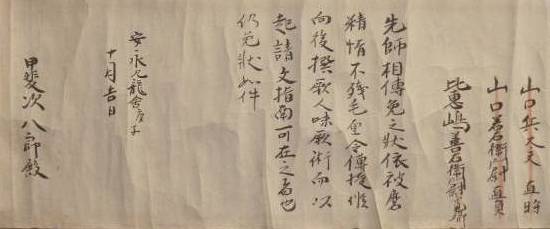 山口兵太夫 直時
山口善右衛門尉 直賀
比恵嶋善右衛門尉
先師相傳免之状依被磨
精情不残毛重令傳授候
向後撰厥人味厥術而以
起請文指南可在之者也
仍免状如件
安永九龍舎庚子
十月吉日
甲斐次八郎殿